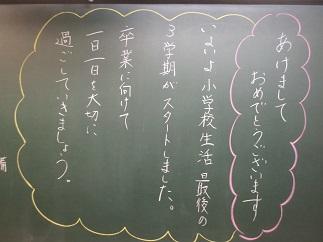 あけまして
おめでとうございます
いよいよ小学校生活最後の
3学期がスタートしました。
卒業に向けて
一日一日を大切に
過ごしていきましょう。